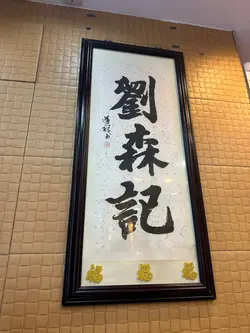 劉森記
福 福 福